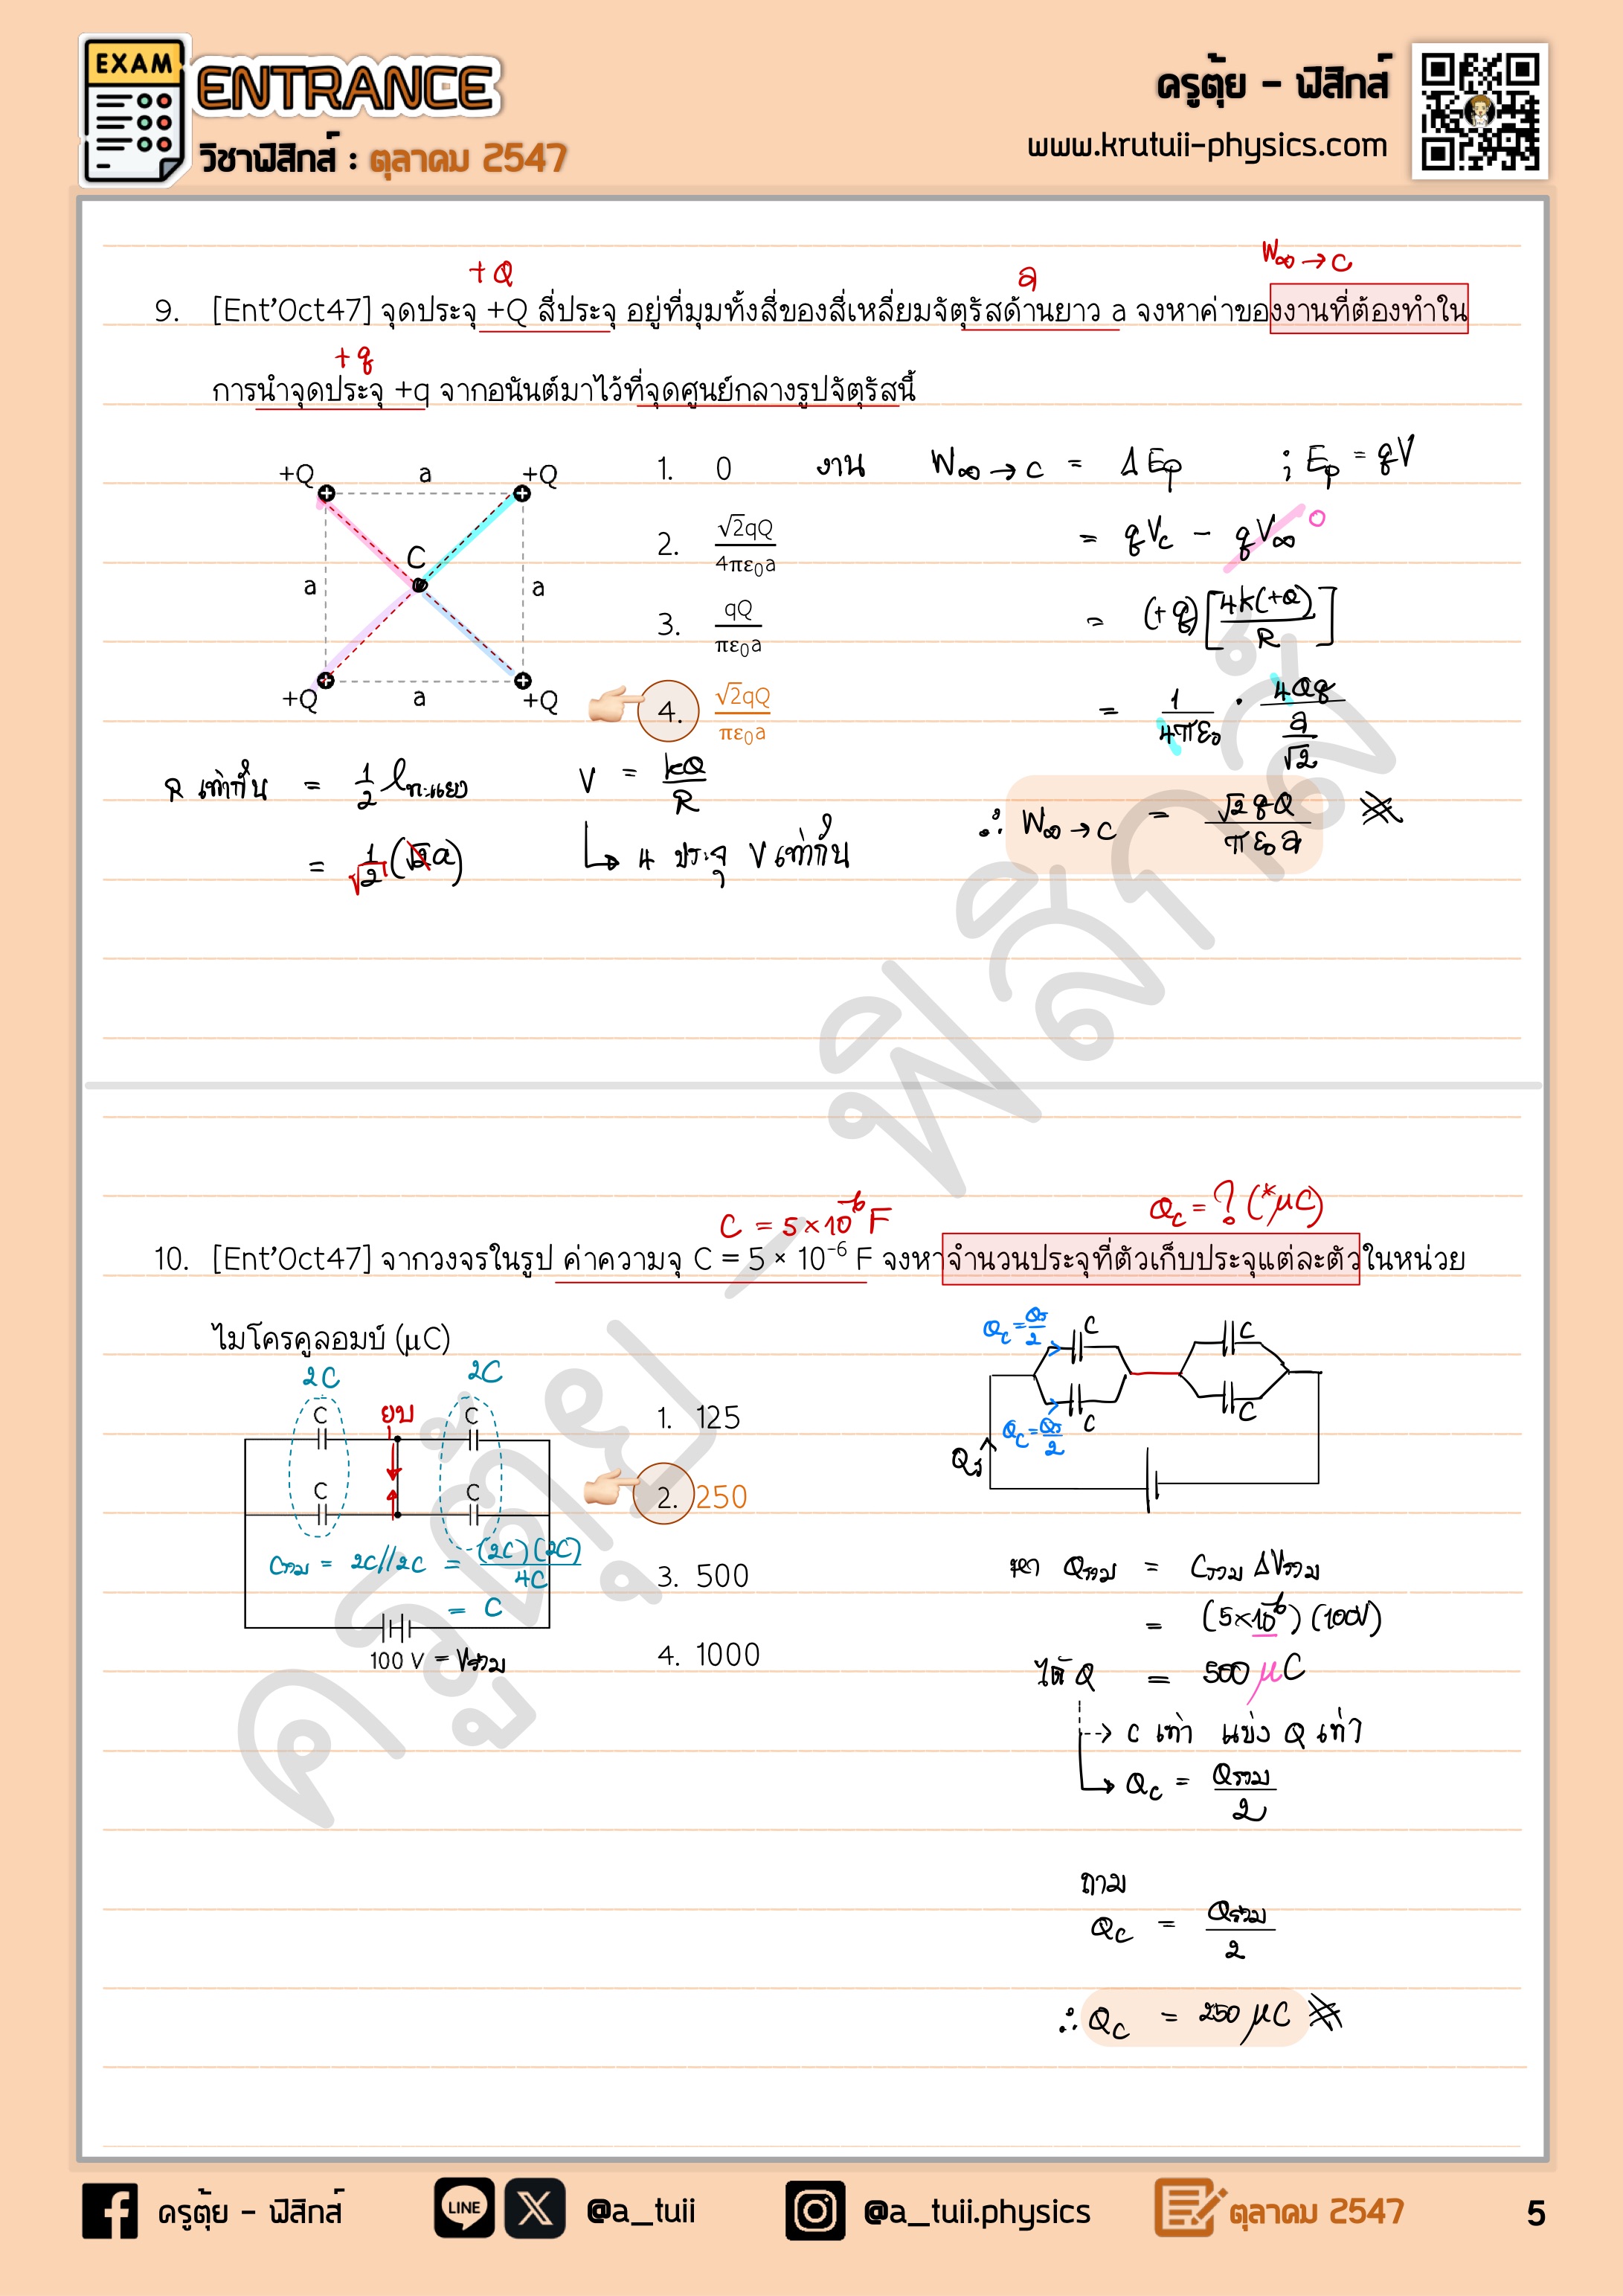 EXAM
ENTRANCE
วิชาฟิสิกส์ : ตุลาคม 2547
ครูตุ้ย - ฟิสิกส์
www.krutuii-physics.com
+Q
a
W∞→C
9. [Ent'Oct47] จุดประจุ +Q สี่ประจุ อยู่ที่มุมทั้งสี่ของสี่เหลี่ยมจัตุรัสด้านยาว a จงหาค่าของงานที่ต้องทำใน
+q
การนำจุดประจุ +q จากอนันต์มาไว้ที่จุดศูนย์กลางรูปจัตุรัสนี้
+Q a +Q
C
a a
+Q a +Q
1. 0
2. √2qQ/4πε₀a
3. qQ/πε₀a
4. √2qQ/πε₀a
งาน W∞→C = ΔEp ; Ep = qV
= qVc - qV∞ 0
= (+q)[4k(+Q)/R]
= 1/4πε₀ · 4Qq/(a/√2)
∴ W∞→C = √2qQ/πε₀a
R เท่ากัน = 1/2 lทะแยง
= 1/2 (√2a)
V = kQ/R
4 ประจุ V เท่ากัน
C = 5×10⁻⁶ F
Qc = ? (*μC)
10. [Ent'Oct47] จากวงจรในรูป ค่าความจุ C = 5 × 10⁻⁶ F จงหาจำนวนประจุที่ตัวเก็บประจุแต่ละตัวในหน่วย
ไมโครคูลอมบ์ (μC)
2C 2C
C ยุบ C
C C
Cรวม = 2C//2C = (2C)(2C)/4C
= C
100 V = Vรวม
1. 125
2. 250
3. 500
4. 1000
Qc = Qร/2 C C
Qc = Qร/2 C C
Qร
หา Qรวม = Cรวม ΔVรวม
= (5×10⁻⁶)(100V)
ได้ Q = 500 μC
C เท่า แบ่ง Q เท่า
Qc = Qรวม/2
ถาม
Qc = Qรวม/2
∴ Qc = 250 μC
ครูตุ้ย - ฟิสิกส์
ครูตุ้ย - ฟิสิกส์
LINE
@a_tuii
@a_tuii.physics
ตุลาคม 2547
5